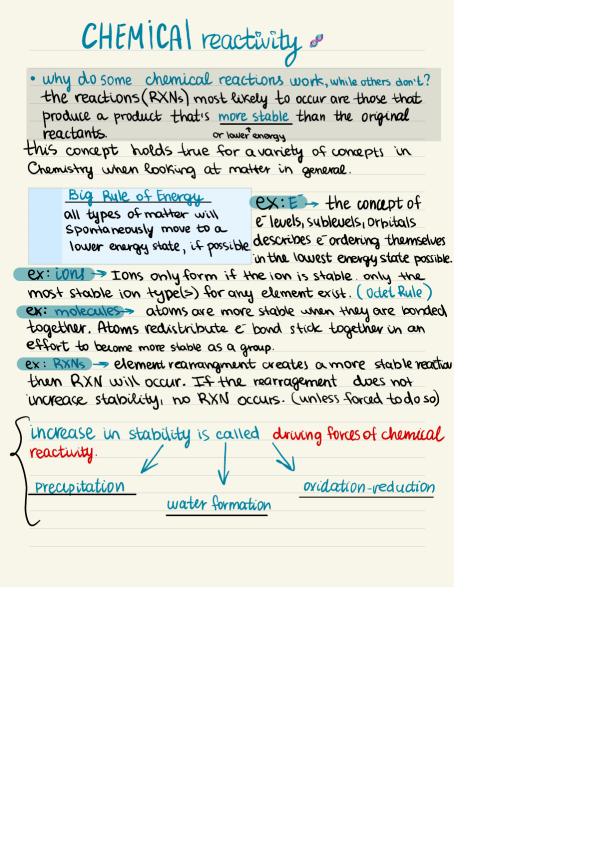 CHEMICAL reactivity
• why do some chemical reactions work, while others don't?
the reactions (RXNs) most likely to occur are those that
produce a product that's more stable than the original
reactants.
or lower energy
this concept holds true for a variety of concepts in
Chemistry when looking at matter in general.
Big Rule of Energy
all types of matter will
spontaneously move to a
lower energy state, if possible
ex: E⁻ → the concept of
e⁻ levels, sublevels, orbitals
describes e⁻ ordering themselves
in the lowest energy state possible.
ex: ions → Ions only form if the ion is stable. only the
most stable ion type(s) for any element exist. (Octel Rule)
ex: molecules → atoms are more stable when they are bonded
together. Atoms redistribute e⁻ bond stick together in an
effort to become more stable as a group.
ex: RXNs → element rearrangment creates a more stable reaction
then RXN will occur. If the rearragement does not
increase stability, no RXN occurs. (unless forced to do so)
increase in stability is called driving forces of chemical
reactivity.
precipitation
water formation
oxidation-reduction